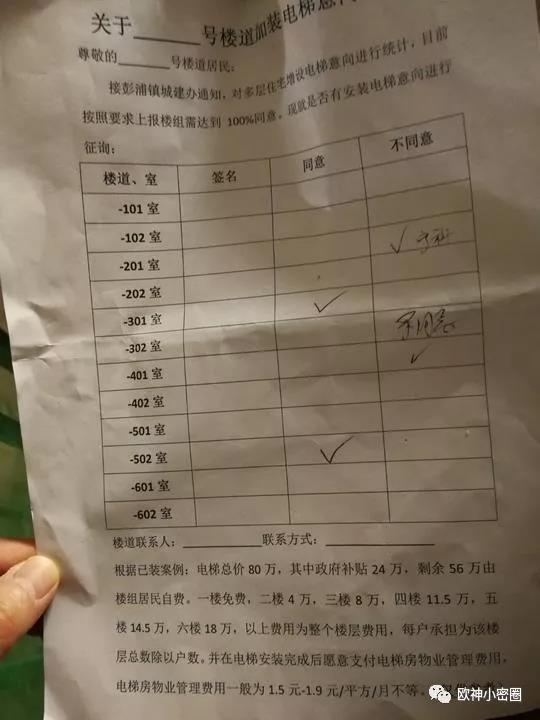 关于______号楼道加装电梯意
尊敬的______号楼道居民：
接彭浦镇城建办通知，对多层住宅增设电梯意向进行统计，目前
按照要求上报楼组需达到 100%同意。现就是否有安装电梯意向进行
征询：
楼道、室 签名 同意 不同意
-101 室
-102 室 ✓
-201 室
-202 室
-301 室 ✓
-302 室
-401 室 ✓
-402 室
-501 室
-502 室 ✓
-601 室
-602 室
楼道联系人：__________联系方式：______________
根据已装案例：电梯总价 80 万，其中政府补贴 24 万，剩余 56 万由
楼组居民自费。一楼免费，二楼 4 万，三楼 8 万，四楼 11.5 万，五
楼 14.5 万，六楼 18 万，以上费用为整个楼层费用，每户承担为该楼
层总数除以户数。并在电梯安装完成后愿意支付电梯房物业管理费用，
电梯房物业管理费用一般为 1.5 元-1.9 元/平方/月不等。
欧神小密圈